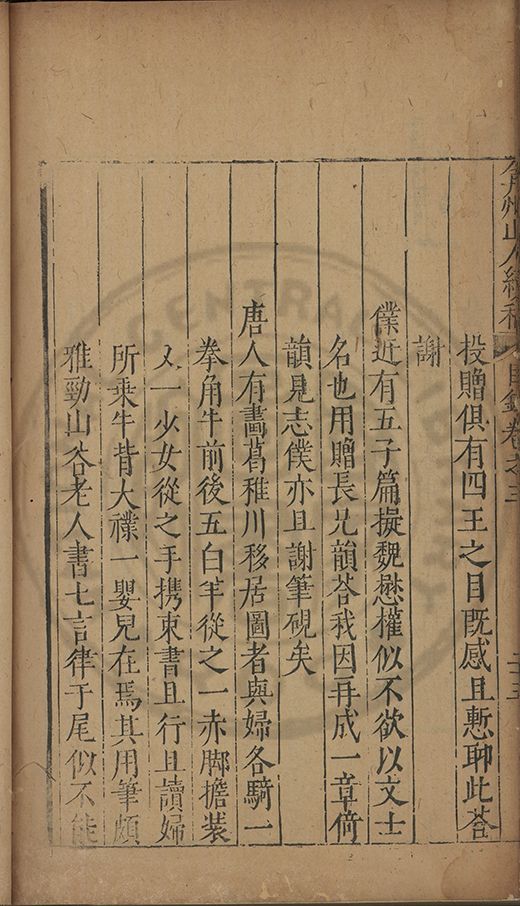 弇州山人續稿 目錄卷之三
投贈俱有四王之目既感且慙聊此荅
謝
僕近有五子篇擬魏懋權似不欲以文士
名也用贈長兄韻荅我因再成一章倚
韻見志僕亦且謝筆硯矣
唐人有畫葛稚川移居圖者與婦各騎一
拳角牛前後五白羊從之一赤脚擔裝
又一少女從之手携束書且行且讀婦
所乘牛背大襆一嬰兒在焉其用筆頗
雅勁山谷老人書七言律于尾似不能